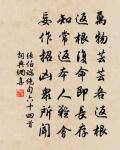 萬物芸芸各返根
返根復命即長存
知常返本人難會
妄作招凶眾所聞
張伯端絕句六十四首
詞典網喜